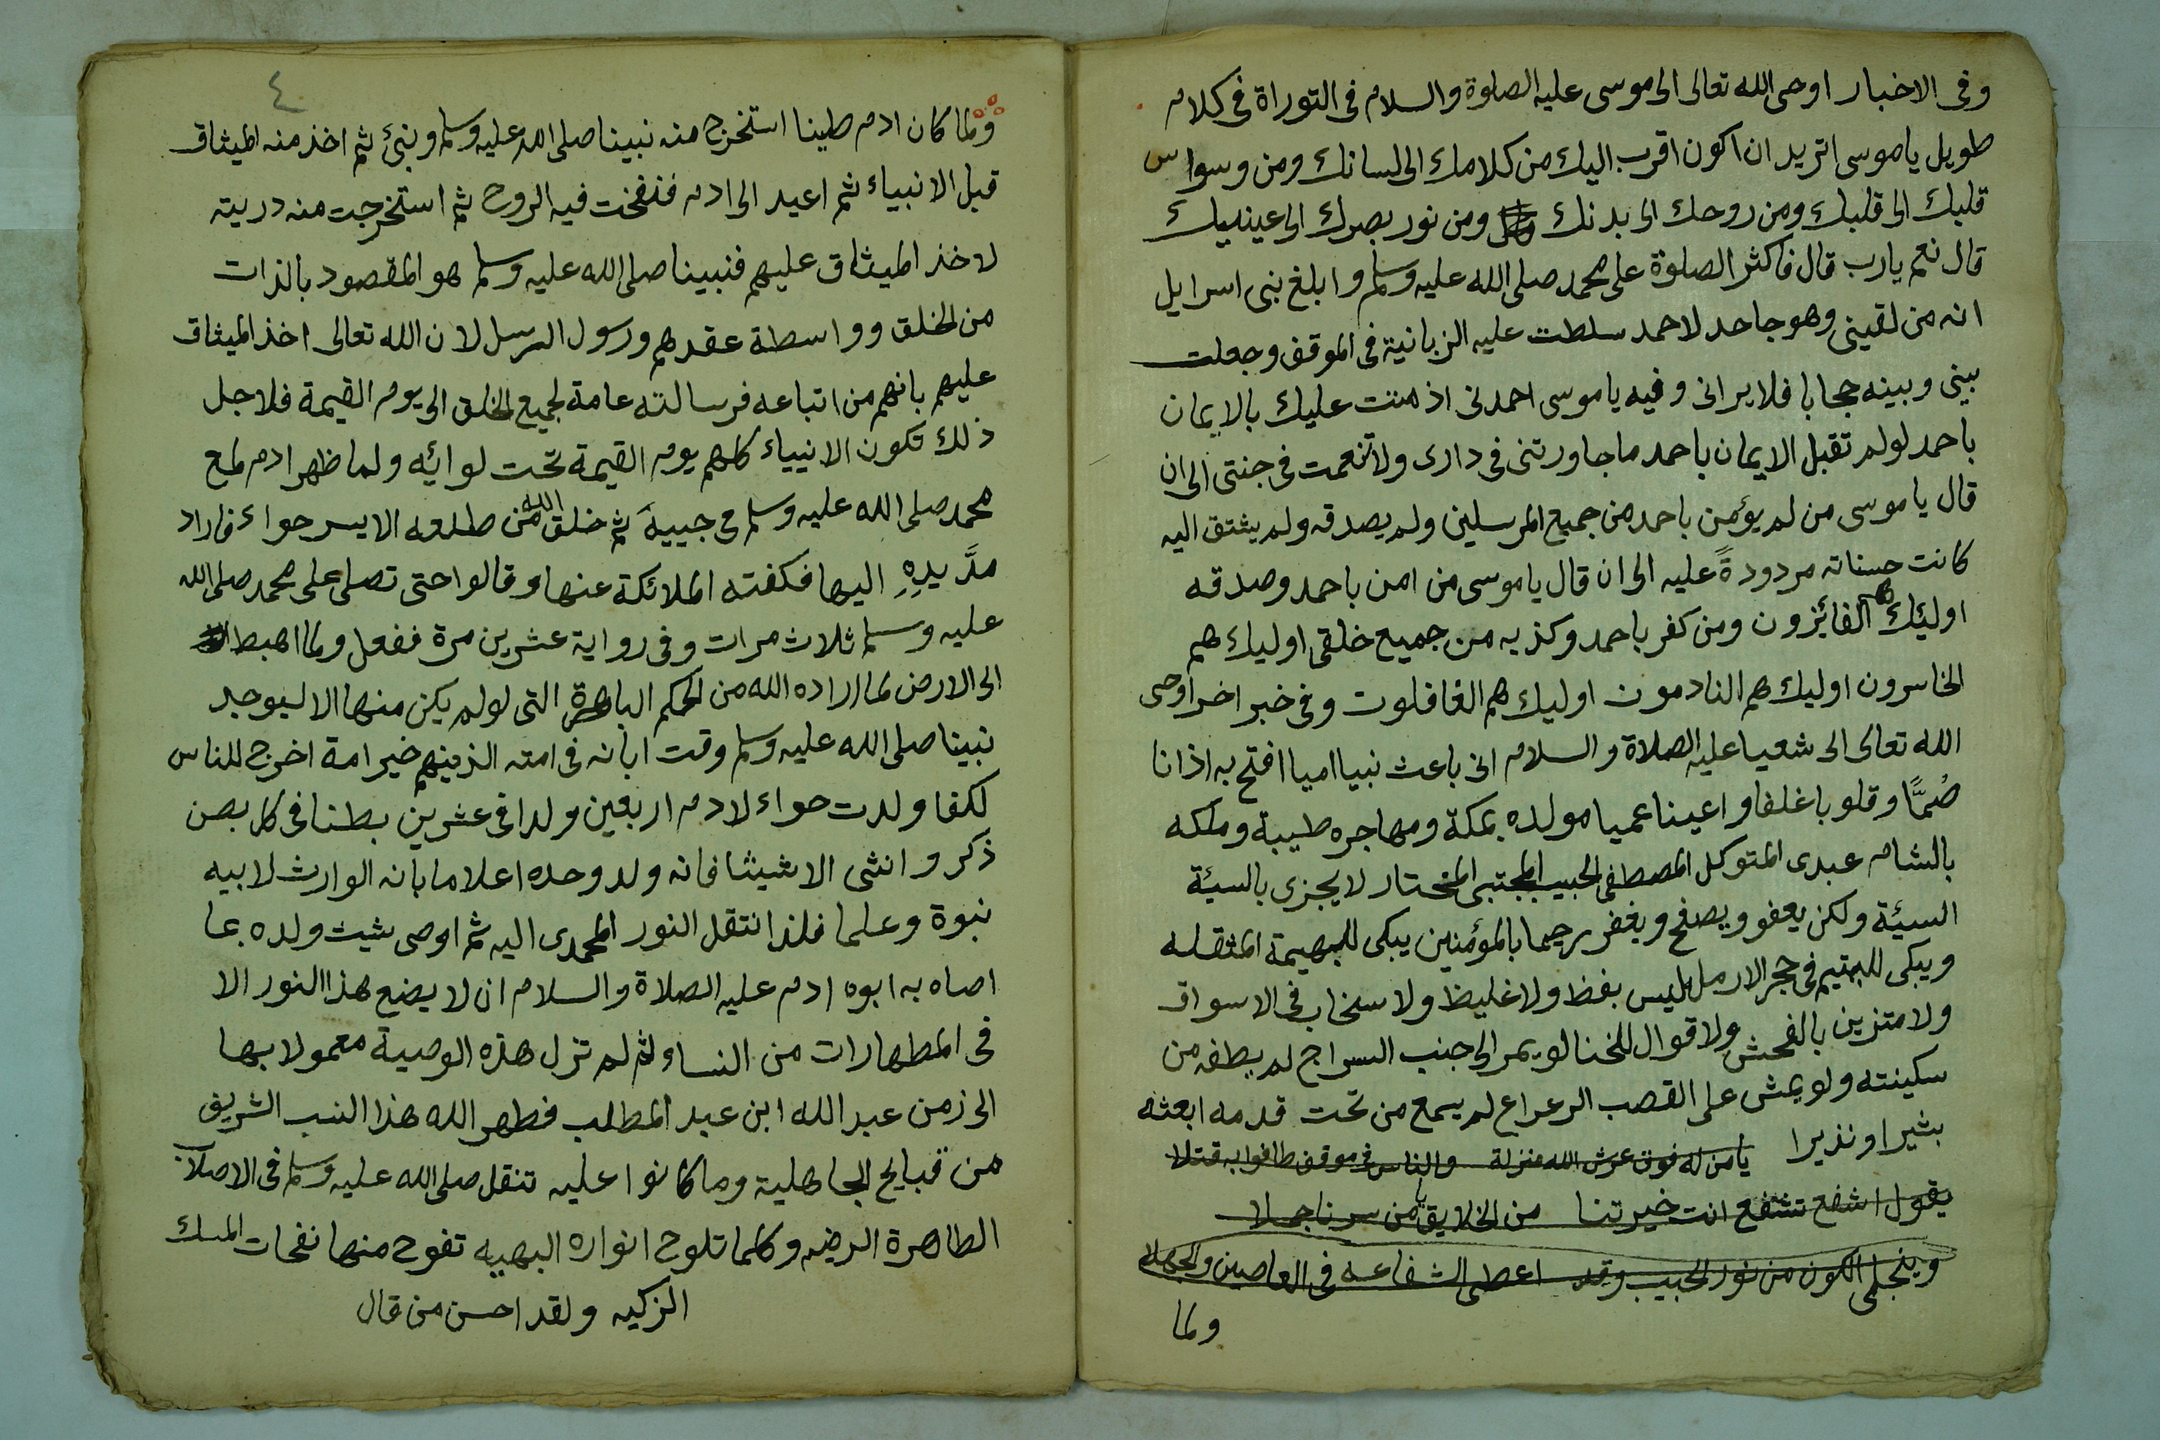 وفى الاخبار اوحى الله تعالى الى موسى عليه الصلوة والسلام فى التوراة فى كلام
طويل ياموسى اتريد ان اكون اقرب اليك من كلامك الى لسانك ومن وسواس
قلبك الى قلبك ومن روحك الى بدنك ومن نور بصرك الى عينيك
قال نعم يارب قال فاكثر الصلوة على محمد صلى الله عليه وسلم وابلغ بنى اسرايل
انه من لقينى وهو جاحد لاحمد سلطت عليه الزبانية فى الموقف وجعلت
بينى وبينه حجابا فلا يرانى وفيه ياموسى احمدنى اذ مننت عليك بالايمان
باحمد لو لم تقبل الايمان باحمد ما جاورتنى فى دارى ولا تنعمت فى جنتى الى ان
قال ياموسى من لم يؤمن باحمد من جميع المرسلين ولم يصدقه ولم يشتق اليه
كانت حسناته مردودةً عليه الى ان قال ياموسى من امن باحمد وصدقه
اوليئك هم الفائزون ومن كفر باحمد وكذبه من جميع خلقى اوليك هم
الخاسرون اوليك هم النادمون اوليك هم الغافلون وفى خبر اخر اوحى
الله تعالى الى شعيا عليه الصلاة والسلام انى باعث نبيا اميا افتح به اذانا
صُمًّا وقلوبا غلفا واعينا عميا مولده بمكة ومهاجره طيبة وملكه
بالشام عبدى المتوكل المصطفى الحبيب المجتبى المختار لا يجزى بالسيئة
السيئة ولكن يعفو ويصفح ويغفر رحيما بالمؤمنين يبكى للبهيمة المثقله
ويبكى لليتيم فى حجر الارمل ليس بفظ ولا غليظ ولا سخاب فى الاسواق
ولا متزين بالفحش ولا قوال للخنا لو يمر الى جنب السراج لم يطفه من
سكينته ولو يمش على القصب الرعراع لم يسمع من تحت قدمه ابعثه
بشيرا ونذيرا يامن له فوق عرش الله منزلة والناس فى موقف طافوا به قتلا
يقول اشفع تشفع انت خيرتنا من الخلايق يامن سرنا جملا
وينجلى الكون من نور الحبيب وقد اعطى الشفاعه فى العاصين والجهلا
ولما
٤
ولما كان ادم طينا استخرج منه نبينا صلى الله عليه وسلم ونبئ ثم اخذ منه الميثاق
قبل الانبياء ثم اعيد الى ادم فنفخت فيه الروح ثم استخرجت منه دريته
لاخذ الميثاق عليهم فنبينا صلى الله عليه وسلم هو المقصود بالذات
من الخلق وواسطة عقدهم ورسول الرسل لان الله تعالى اخذ الميثاق
عليهم بانهم من اتباعه فرسالته عامة لجميع الخلق الى يوم القيمة فلاجل
ذلك تكون الانبياء كلهم يوم القيمة تحت لوائه ولما ظهر ادم لمع
محمد صلى الله عليه وسلم فى جبينه ثم خلق الله من ضلعه الايسر حواء فاراد
مدَّ يدِهِ اليها فكفته الملائكة عنها وقالوا حتى تصلى على محمد صلى الله
عليه وسلم ثلاث مرات وفى رواية عشرين مرة ففعل ولما اهبط
الى الارض لما اراده الله من الحكم الباهرة التى لو لم يكن منها الا ليوجد
نبينا صلى الله عليه وسلم وقت ابانه فى امته الذينهم خير امة اخرج للناس
لكفا ولدت حواء لادم اربعين ولدا فى عشرين بطنا فى كل بصن
ذكر وانثى الا شيثا فانه ولد وحده اعلاما بانه الوارث لابيه
نبوة وعلما فلذا انتقل النور المحمدى اليه ثم اوصى شيث ولده بما
اصاه به ابوه ادم عليه الصلاة والسلام ان لا يضع هذا النور الا
فى المطهارات من النساء ثم لم تزل هذه الوصية معمولا بها
الى زمن عبد الله ابن عبد المطلب فطهر الله هذا النسب الشريف
من قبايح الجاهلية وما كانوا عليه تنقل صلى الله عليه وسلم فى الاصلاب
الطاهرة الرضيه وكلما تلوح انواره البهيه تفوح منها نفحات المسك
الزكيه ولقد احسن من قال